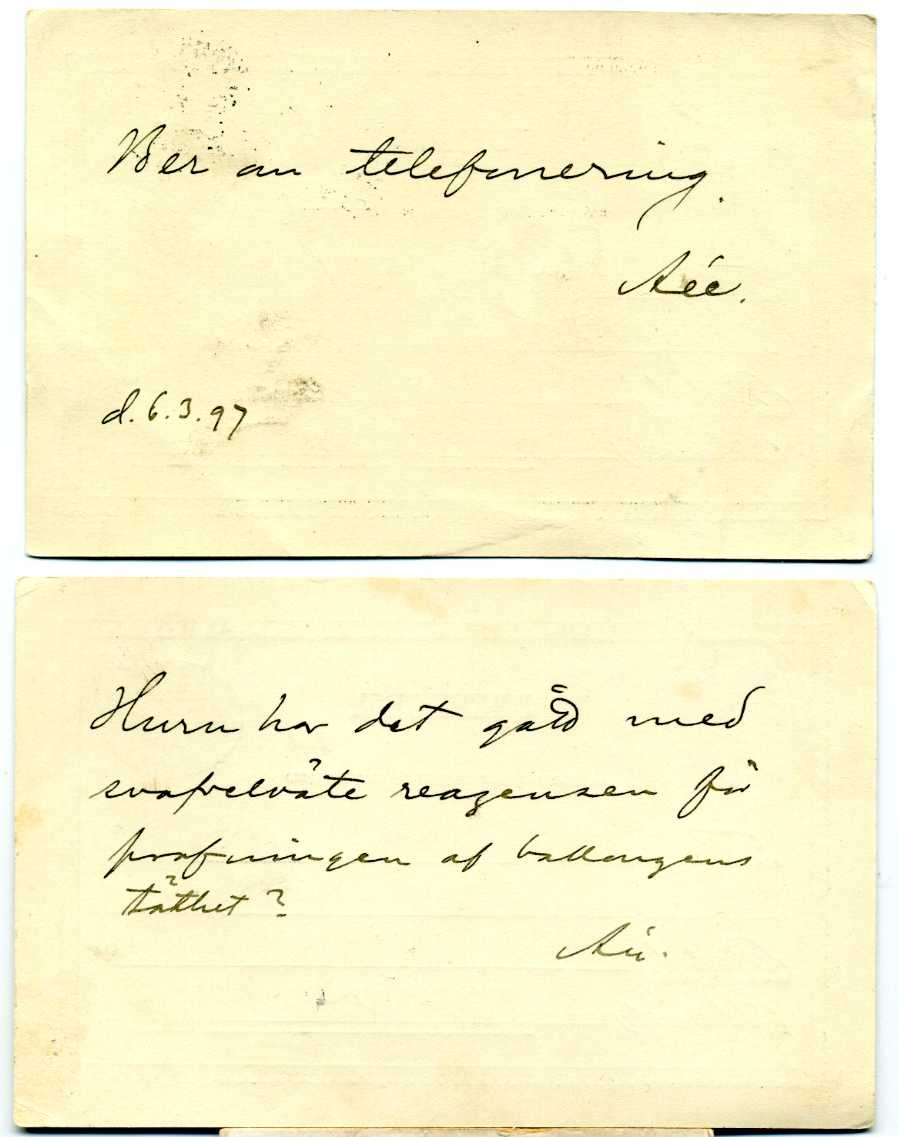 Ber om telefonering.
d. 6.3.97
Huru har det gått med
svafvelväte reagensen för
profningen af ballongens
täthet?